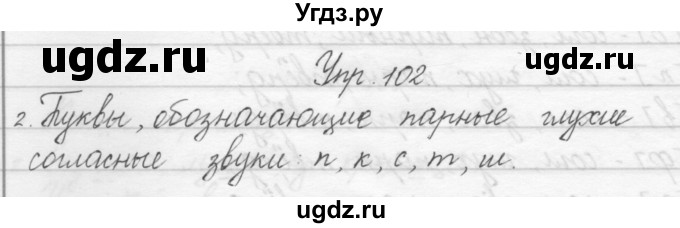 Угдз.ру
ugdz.ru
ugdz.ru
Упр. 102
2. Буквы, обозначающие парные глухие
согласные звуки: п, к, с, т, ш.
ugdz.ru
ugdz.ru